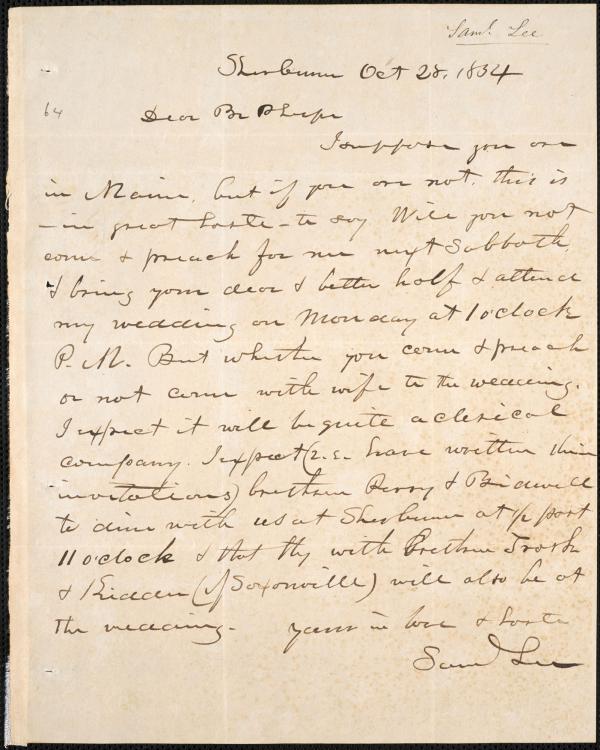 Saml. Lee
Sherburne Oct 28. 1834
64
Dear Br Phelps
I suppose you are
in Maine, but if you are not, this is
- in great haste - to say Will you not
come & preach for me next Sabbath,
& bring your dear & better half & attend
my wedding on Monday at 1 o'clock
P. M. But whether you come & preach
or not come with wife to the wedding.
I expect it will be quite a clerical
company. I expect (i. e. have written them
invitations) brethren Perry & Bidwell
to dine with us at Sherburne at ½ past
11 o'clock & that they with Brethren Trask
& Kidder (of Saxonville) will also be at
the wedding. yours in love & haste
Saml Lee